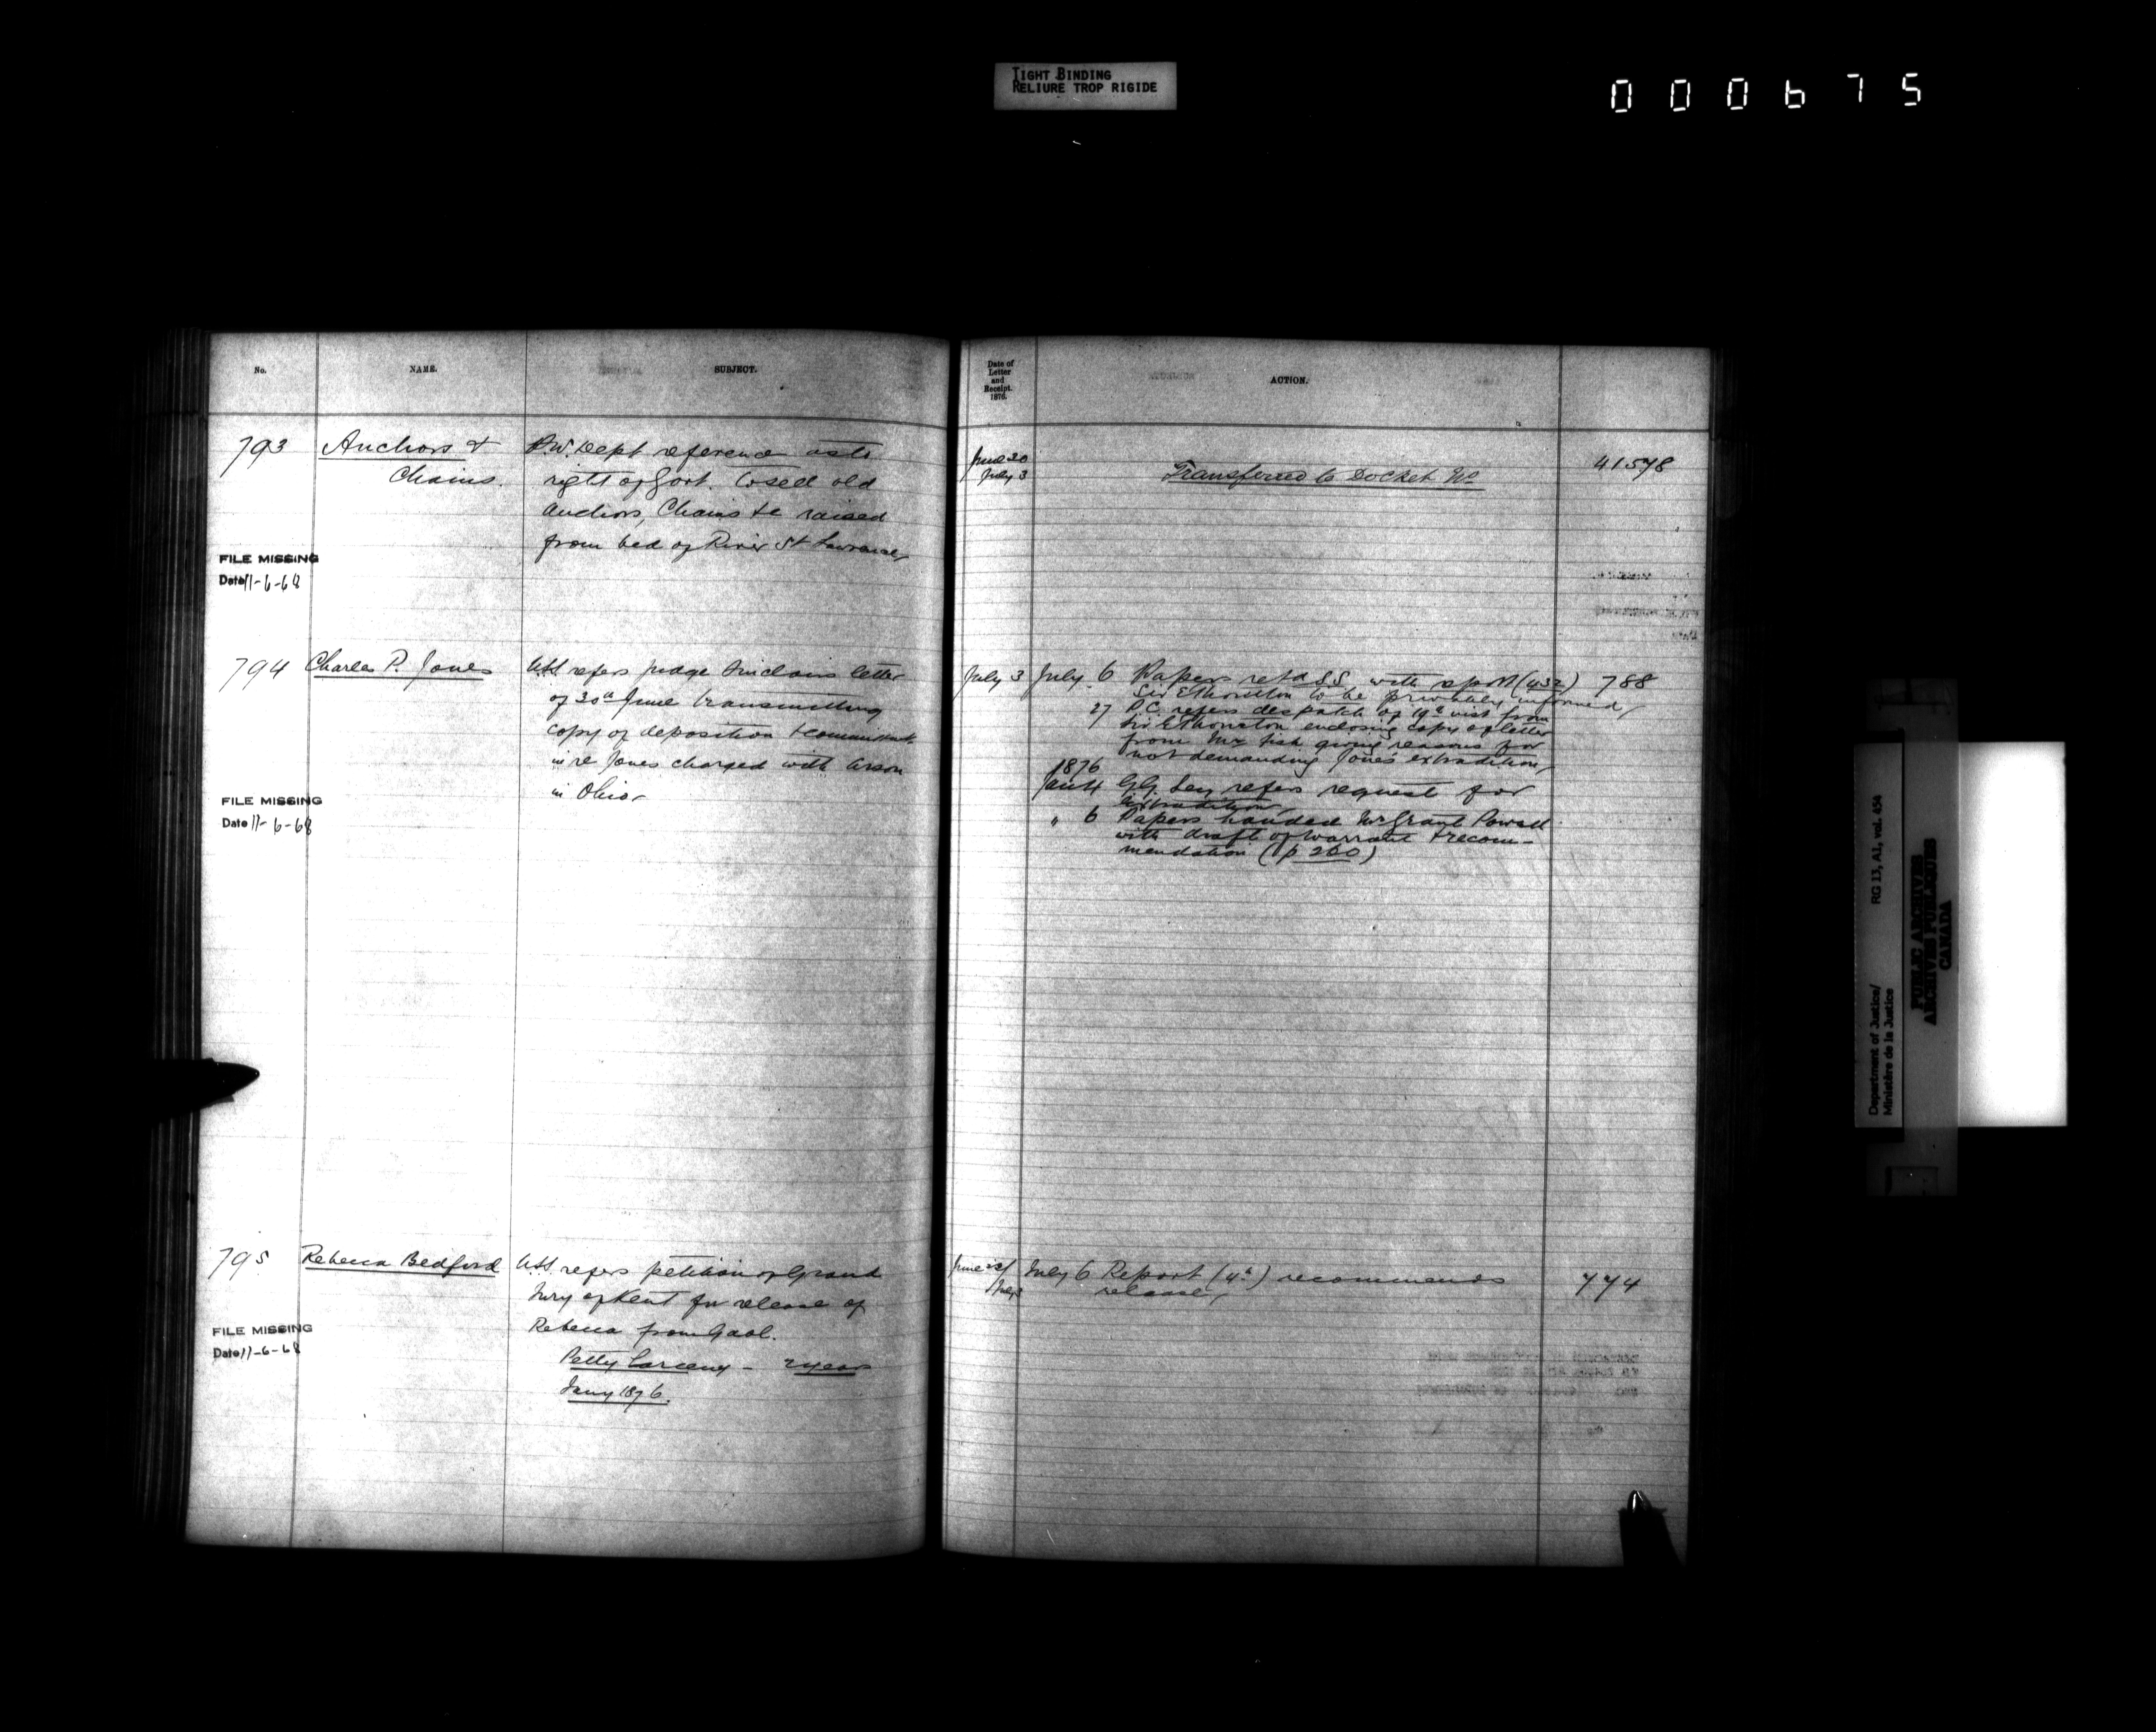 TIGHT BINDING
RELIURE TROP RIGIDE
000675
No.
NAME.
SUBJECT.
Date of
Letter
and
Receipt.
1876.
ACTION.
793
Anchors &
Chains.
P.W. Dept reference as to
right of Govt. to sell old
anchors, Chains &c raised
from bed of River St Lawrence
FILE MISSING
Date 11-6-68
June 20
July 3
Transferred to Docket No
794
Charles P. Jones
refers Judge Sinclairs letter
of 30th June transmitting
copy of deposition &
in re Jones charged with Arson
in Ohio
FILE MISSING
Date 11-6-68
July 3
July 6 Papers retd S.S. with report (432)
788
Sir E Thornton to be privately informed
27 P.C. refers despatch of 19th inst from
Sir E Thornton enclosing copy of letter
from Mr Fish giving reasons for
not demanding Jones' extradition
1876
Jan 4 G.G. Secy refers request for
extradition
" 6 Papers handed Mr Grant Powell
with draft of Warrant & recom-
mendation (p 260)
795
Rebecca Bedford
refers petition of Grand
Jury of Kent for release of
Rebecca from Gaol.
Petty Larceny - 2 years
Jany 1876.
FILE MISSING
Date 11-6-68
June
July 3
July 6 Report (4th) recommends
release
774
Department of Justice/
Ministère de la Justice
RG 13, A1, vol. 454
PUBLIC ARCHIVES
ARCHIVES PUBLIQUES
CANADA